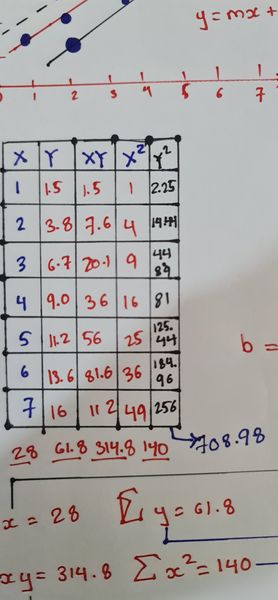 y = mx +
1 2 3 4 5 6 7
X Y XY X² Y²
1 1.5 1.5 1 2.25
2 3.8 7.6 4 14.44
3 6.7 20.1 9 44 89
4 9.0 36 16 81
5 11.2 56 25 125.44
6 13.6 81.6 36 184.96
7 16 112 49 256
b =
28 61.8 314.8 140
708.98
x = 28 ∑ y = 61.8
xy = 314.8 ∑ x² = 140